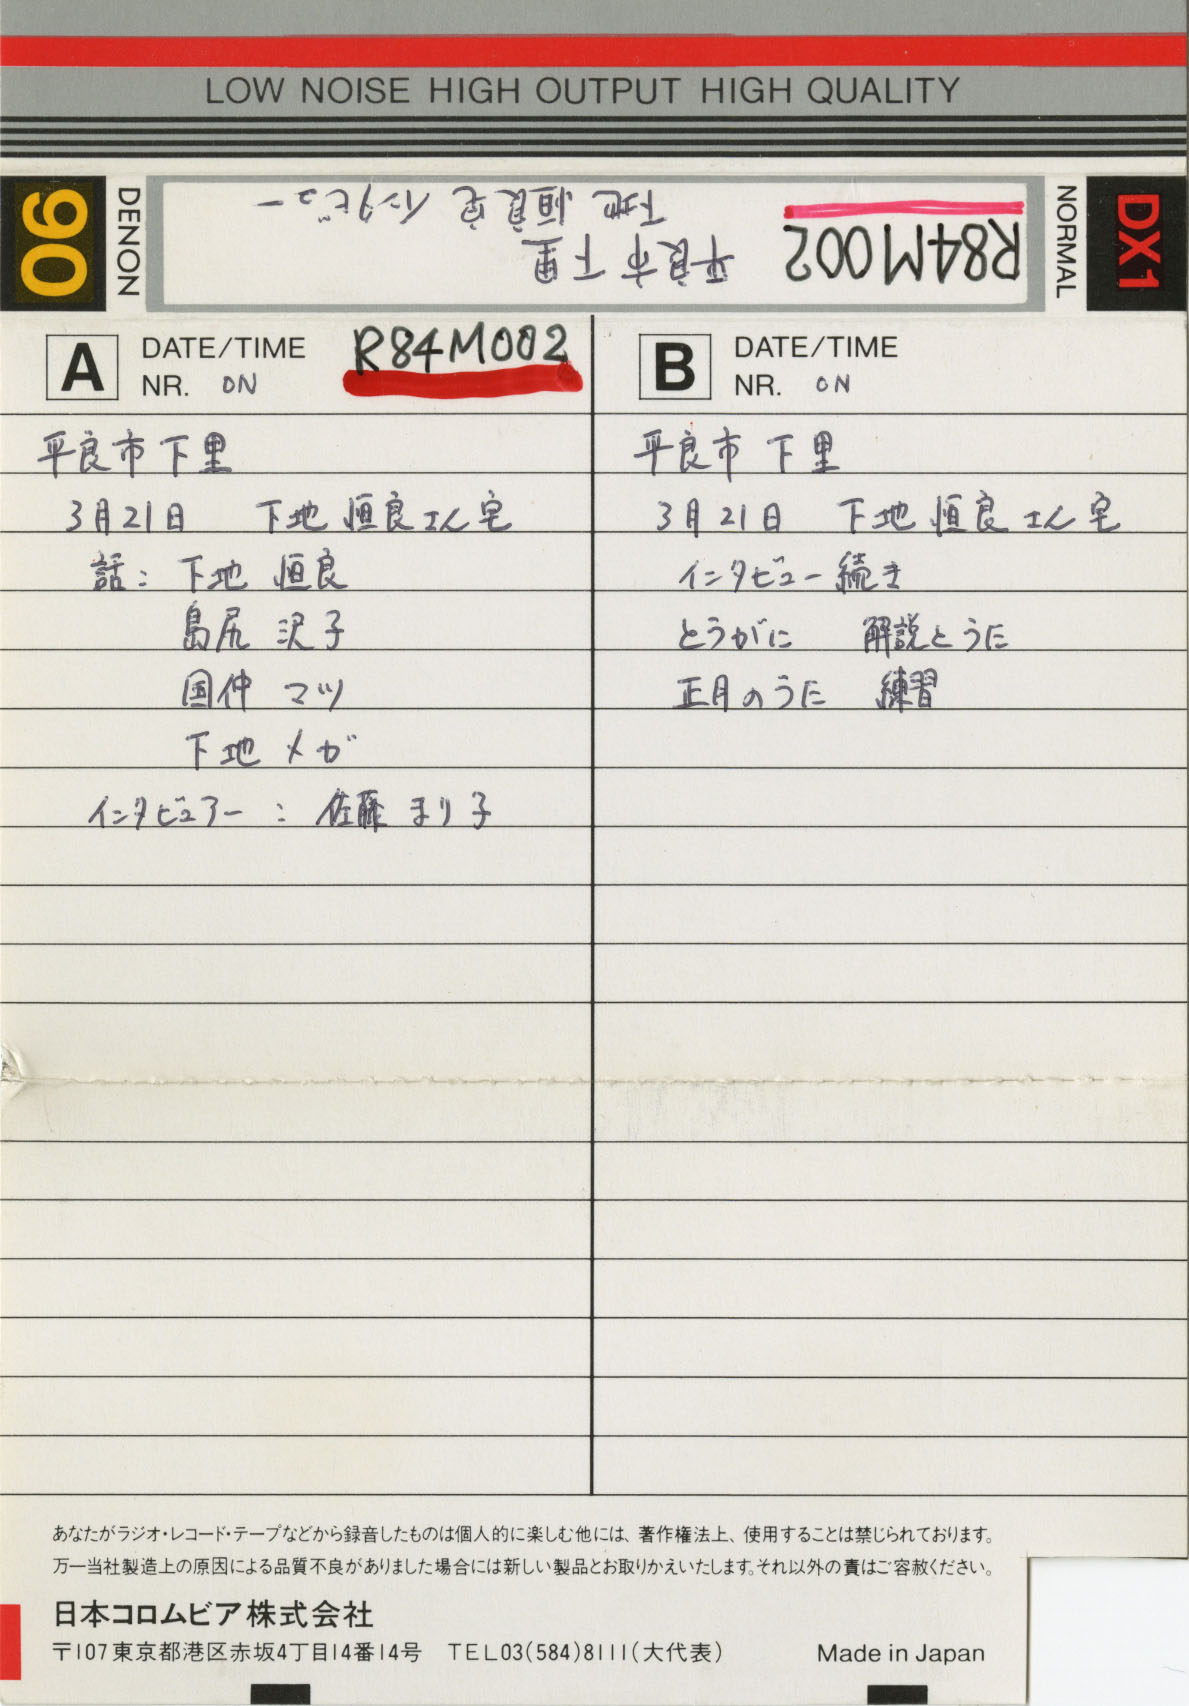 LOW NOISE HIGH OUTPUT HIGH QUALITY
90
DENON
R84M002
平良市下里
下地 恒良宅 インタビュー
NORMAL
DX1
A
DATE/TIME
NR. ON
R84M002
平良市下里
3月21日 下地 恒良さん宅
話: 下地 恒良
島尻 沢子
国仲 マツ
下地 メガ
インタビュアー : 佐藤 まり子
B
DATE/TIME
NR. ON
平良市 下里
3月21日 下地 恒良さん宅
インタビュー続き
とうがに 解説とうた
正月のうた 練習
あなたがラジオ・レコード・テープなどから録音したものは個人的に楽しむ他には、著作権法上、使用することは禁じられております。
万一当社製造上の原因による品質不良がありました場合には新しい製品とお取りかえいたします。それ以外の責はご容赦ください。
日本コロムビア株式会社
〒107東京都港区赤坂4丁目14番14号 TEL03(584)8111(大代表)
Made in Japan